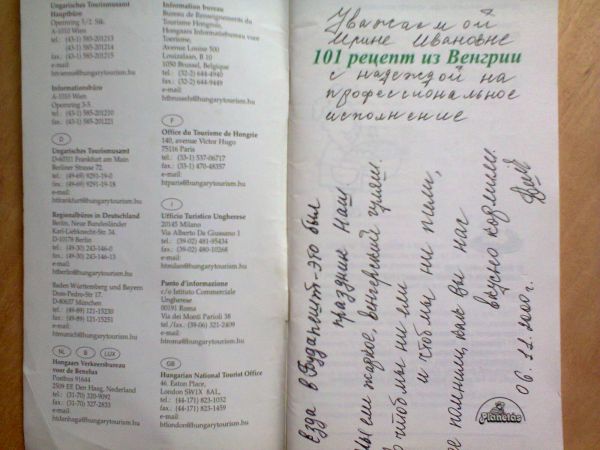 Ungarisches Tourismusamt
Hauptbüro
Opernring 5/2. Stk.
A-1010 Wien
tel.: (43-1) 585-201213
(43-1) 585-201214
fax.: (43-1) 585-201215
e-mail:
htvienna@hungarytourism.hu
Informationsbüro
A-1010 Wien
Opernring 3-5.
tel.: (43-1) 585-201210
(43-1) 585-201221
D
Ungarisches Tourismusamt
D-60311 Frankfurt am Main
Berliner Strasse 72.
tel.: (49-69) 9291-19-0
fax.: (49-69) 9291-19-18
e-mail:
htfrankfurt@hungarytourism.hu
Regionalbüros in Deutschland
Berlin, Neue Bundesländer
Karl-Liebknecht-Str. 34.
D-10178 Berlin
tel.: (49-30) 243-146-0
fax.: (49-30) 243-146-13
e-mail:
htberlin@hungarytourism.hu
Baden Württemberg und Bayern
Dom-Pedro-Str. 17.
D-80637 München
tel.: (49-89) 121-15230
fax.: (49-89) 121-15251
e-mail:
htmunich@hungarytourism.hu
NL B LUX
Hongaars Verkeersbureau
voor de Benelux
Postbus 91644
2509 EE Den Haag, Nederland
tel.: (31-70) 320-9092
fax.: (31-70) 327-2833
e-mail:
htdenhaga@hungarytourism.hu
Information bureau
Bureau de Renseignements du
Tourisme Hongrois,
Hongaars Informatiebureau voor
Toerisme,
Avenue Louise 500
Louizalaan, B 10
1050 Brussel, Belgique
tel.: (32-2) 644-4940
fax.: (32-2) 644-9449
e-mail:
htbrussels@hungarytourism.hu
F
Office du Tourisme de Hongrie
140, avenue Victor Hugo
75116 Paris
tel.: (33-1) 537-06717
fax.: (33-1) 470-48357
e-mail:
htparis@hungarytourism.hu
I
Ufficio Turistico Ungherese
20145 Milano
Via Alberto Da Giussano 1
tel.: (39-02) 481-95434
fax.: (39-02) 480-10268
e-mail:
htmilan@hungarytourism.hu
Punto d'informazione
c/o Istituto Commerciale
Ungherese
00191 Roma
Via dei Monti Parioli 38
tel./fax.: (39-06) 321-2409
e-mail:
htroma@hungarytourism.hu
GB
Hungarian National Tourist Office
46. Eaton Place,
London SW1X 8AL,
tel.: (44-171) 823-1032
fax.: (44-171) 823-1459
e-mail:
htlondon@hungarytourism.hu
Уважаемой
Ирине Ивановне
101 рецепт из Венгрии
с надеждой на
профессиональное
исполнение
Езда в Будапешт-это был
праздник наш
ели жаркое, венгерский гуляш.
чтобы мы ни ели
и чтоб мы ни пили,
помним, как вы нас
вкусно кормили.
06.12.2000г.
Planetas